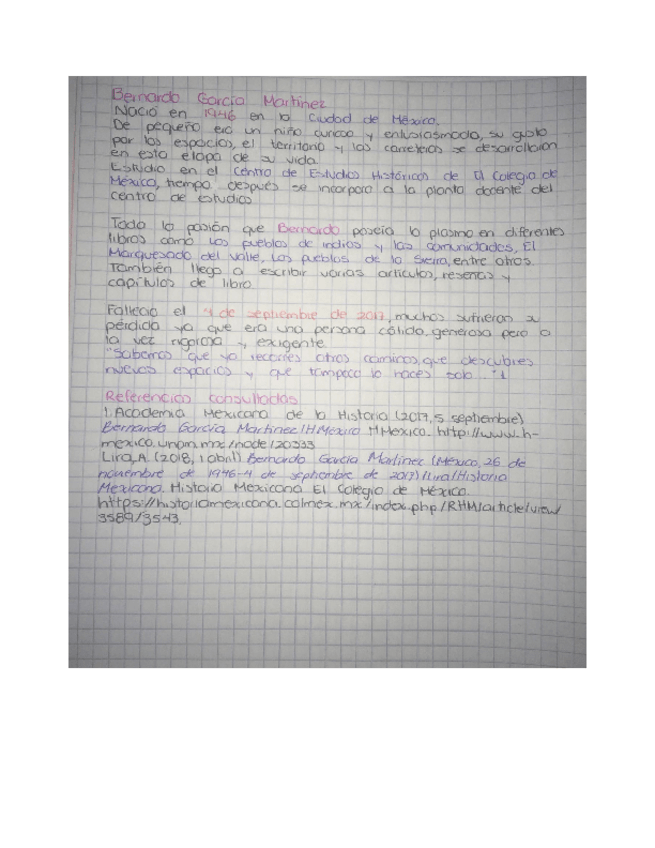 Bernardo García Martínez
Nació en 1946 en la Ciudad de México.
De pequeño era un niño curioso y entusiasmado, su gusto
por los espacios, el territorio y las carreteras se desarrollaron
en esta etapa de su vida.
Estudio en el Centro de Estudios Históricos de El Colegio de
México, tiempo después se incorporo a la planta docente del
centro de estudios.
Toda la pasión que Bernardo poseía lo plasmo en diferentes
libros como Los pueblos de indios y las comunidades, El
Marquesado del Valle, Los pueblos de la Sierra, entre otros.
También llego a escribir varios artículos, reseñas y
capítulos de libro.
Falleció el 4 de septiembre de 2017, muchos sufrieron su
pérdida ya que era una persona cálida, generosa pero a
la vez rigorosa y exigente.
"Sabemos que ya recorres otros caminos, que descubres
nuevos espacios y que tampoco lo haces solo..."1
Referencias consultadas
1. Academia Mexicana de la Historia (2017, 5 septiembre)
Bernardo García Martínez | HMéxico. HMéxico. http://www.h-
mexico.unam.mx/node/20333
Lira, A. (2018, 1 abril) Bernardo García Martínez (México, 26 de
noviembre de 1946-4 de septiembre de 2017) | Lira | Historia
Mexicana. Historia Mexicana El Colegio de México.
https://historiamexicana.colmex.mx/index.php/RHM/article/view/
3589/3543.